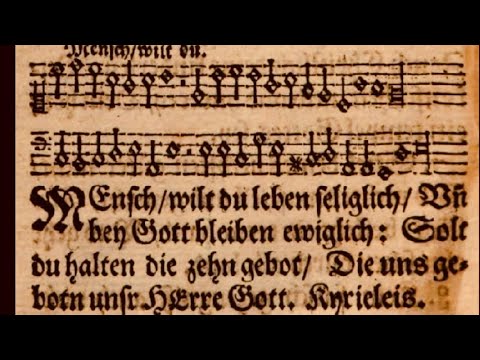 Mensch/wilt du.
MEnsch/wilt du leben seliglich/ Vñ
bey Gott bleiben ewiglich: Solt
du halten die zehn gebot/ Die uns ge-
botn unsr HErre Gott. Kyrieleis.